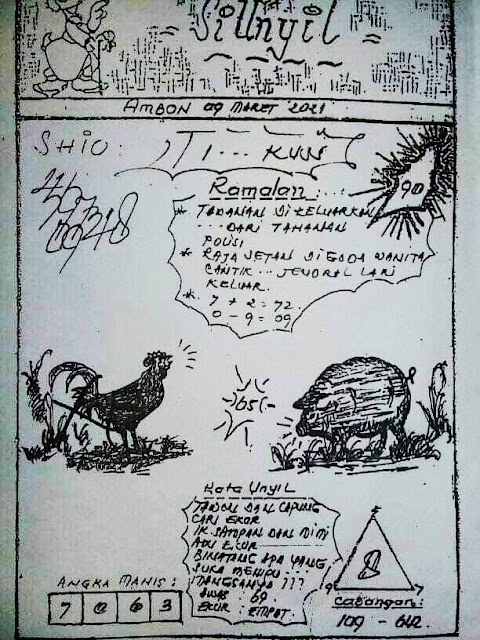 Si Unyil
AMBON 09 MARET 2021
SHIO:
TI... KUS
90
Ramalan:...
* TAHANAN DI KELUARKAN
... DARI TAHANAN
POLISI
* RAJA SETAN DI GODA WANITA
CANTIK... JENDRAL LARI
KELUAR.
* 7 + 2 = 72
0 - 9 = 09
65(-
Kata Unyil
DAN CAPUNG
CARI EKOR
DAN MIMI
ADU EKOR
BINATANG APA YANG
SUKA
MANGSANYA ???
AWAS: 69
EKOR: EMPAT.
8
9
7
ANGKA MANIS:
7 0 6 3
Cabangan:
109 - 642